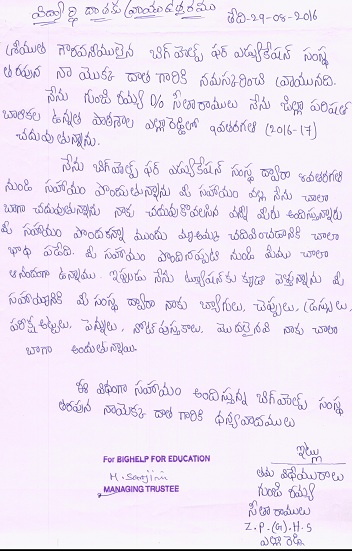 విద్యార్థి దాతకు వ్రాయు ఉత్తరము
తేది-29-08-2016
శ్రీయుత గౌరవనీయులైన బిగ్ హెల్ప్ ఫర్ ఎడ్యుకేషన్ సంస్థ
తరపున నా యొక్క దాత గారికి నమస్కరించి వ్రాయునది.
నేను గుంజి రమ్య D/o సీతారాములు నేను జిల్లా పరిషత్
బాలికల ఉన్నత పాఠశాల ఎల్లారెడ్డిలో 10వతరగతి (2016-17)
చదువుతున్నాను.
నేను బిగ్ హెల్ప్ ఫర్ ఎడ్యుకేషన్ సంస్థ ద్వారా 8వతరగతి
నుండి సహాయం పొందుతున్నాను మీ సహాయం వల్ల నేను చాలా
బాగా చదువుతున్నాను నాకు చదువుకోవలసిన వన్ని మీరు అందిస్తున్నారు
మీ సహాయం పొందకన్నా ముందు మా అమ్మకు చదివించడానికి చాలా
బాధ పడేది. మీ సహాయం పొందినప్పటి నుండి మేము చాలా
ఆనందంగా ఉన్నాము. ఇప్పుడు నేను ట్యూషన్‌కు కూడా వెళ్తున్నాను మీ
సహాయానికి మీ సంస్థ ద్వారా నాకు బ్యాగులు, చెప్పులు, డ్రెస్సులు,
పరీక్ష అట్టలు, పెన్నులు, నోట్ పుస్తకాలు, మొదలైనవి నాకు చాలా
బాగా అందుతున్నాయి.
ఈ విధంగా సహాయం అందిస్తున్న బిగ్ హెల్ప్ సంస్థ
తరపున నాయొక్క దాత గారికి ధన్యవాదములు
For BIGHELP FOR EDUCATION
MANAGING TRUSTEE
ఇట్లు
తమ విధేయురాలు
గుంజి రమ్య
సీతారాములు
Z.P.(G).H.S
ఎల్లారెడ్డి